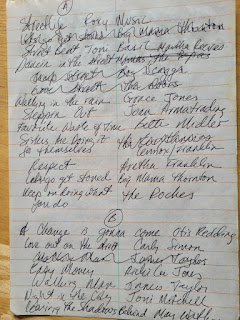 A
Streetlife Roxy Music
Let's go get stoned Big Mama Thornton
Street Beat Toni Basil Martha Reeves
Dancin in the street Mamas, the Papas
Boz Scaggs
Love Street The Doors
Walking in the rain Grace Jones
Steppin Out Joan Armatrading
Favorite Waste of Time Bette Midler
Sisters Are Doing it The Eurythmics
for themselves Lennox/Franklin
Respect Aretha Franklin
Let's go get stoned Big Mama Thornton
Keep on doing what The Roches
you do
B
A Change is Gonna come Otis Redding
Love out on the street Carly Simon
James Taylor
Easy Money Rickie Lee Jones
Walking Man James Taylor
Night in the City Joni Mitchell
Leaving the Shadows Behind May